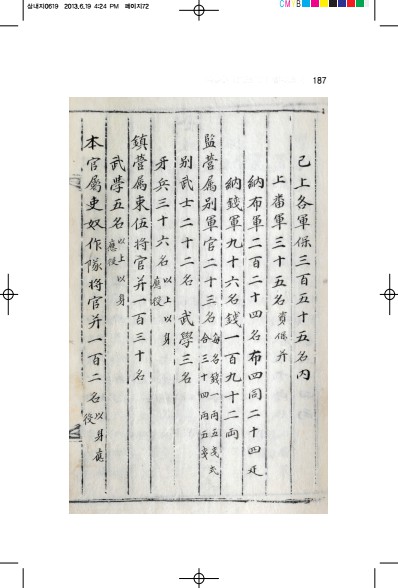 삼내지0619 2013.6.19 4:24 PM 페이지72
CMYB
187
已上各軍保三百五十五名內
上番軍三十五名資保幷
納布軍二百二十四名布四同二十四疋
納錢軍九十六名錢一百九十二兩
監營屬別軍官二十三名每名錢一兩五戔式合三十四兩五戔
別武士二十二名 武學三名
牙兵三十六名以上以身應役
鎭營屬束伍將官幷一百三十名
武學五名以上以身應役
本官屬吏奴作隊將官幷一百二名以身應役